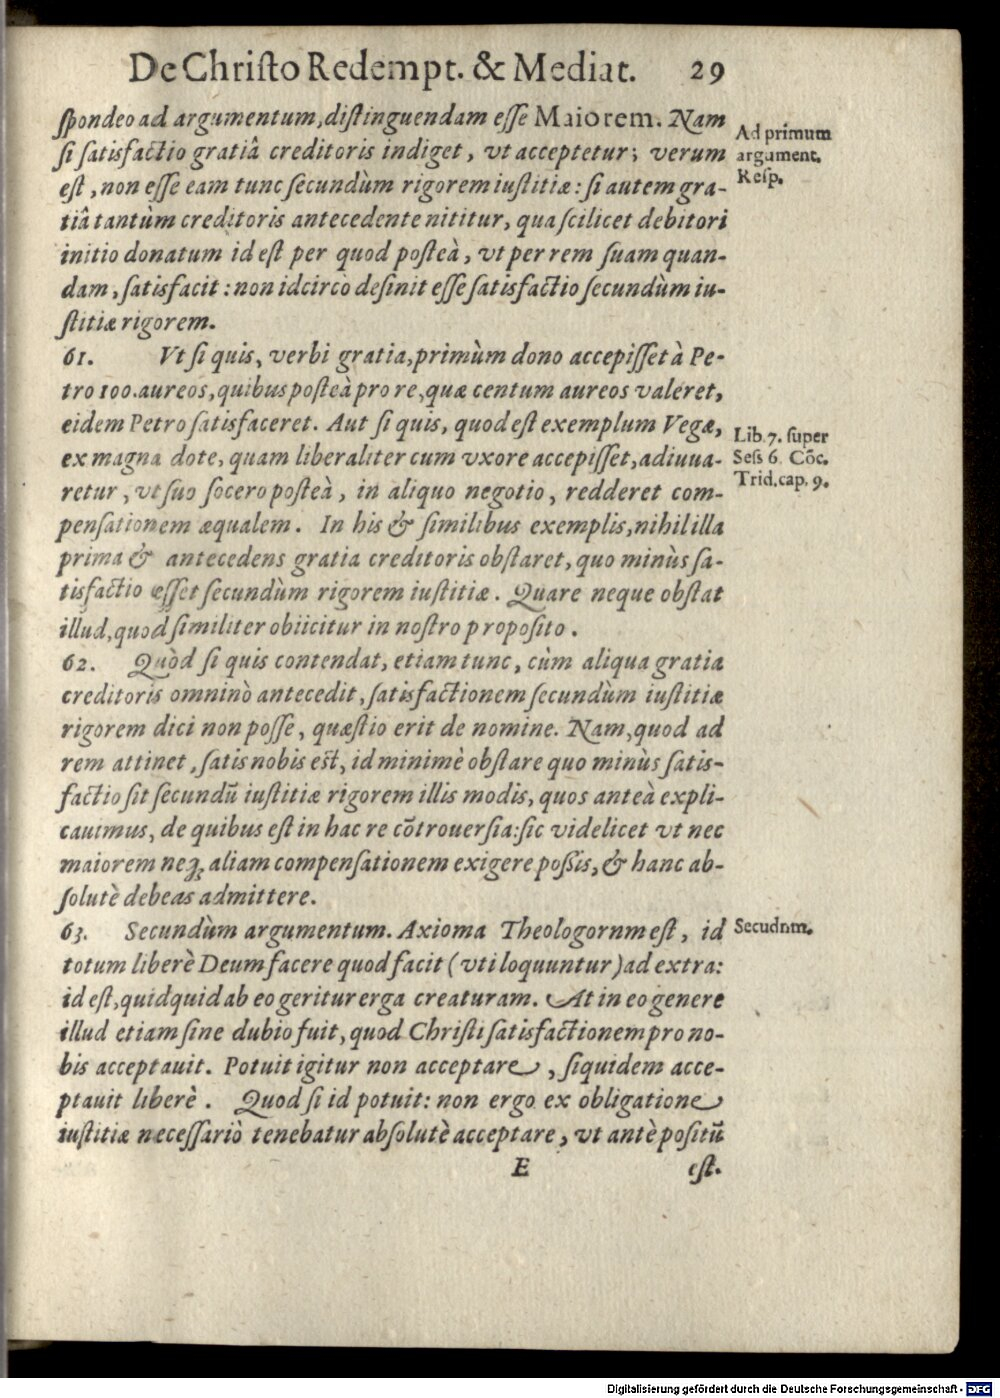 De Christo Redempt. & Mediat. 29
ſpondeo ad argumentum, diſtinguendam eſſe Maiorem. Nam
Ad primum
ſi ſatisfactio gratiâ creditoris indiget, vt acceptetur; verum
argument.
eſt, non eſſe eam tunc ſecundùm rigorem iuſtitiæ: ſi autem gra-
Reſp.
tiâ tantùm creditoris antecedente nititur, qua ſcilicet debitori
initio donatum id eſt per quod poſteà, vt per rem ſuam quan-
dam, ſatisfacit: non idcircò deſinit eſſe ſatisfactio ſecundùm iu-
ſtitiæ rigorem.
61. Vt ſi quis, verbi gratia, primùm dono accepiſſet à Pe-
tro 100. aureos, quibus poſteà pro re, quæ centum aureos valeret,
eidem Petro ſatisfaceret. Aut ſi quis, quod eſt exemplum Vegæ,
Lib. 7. ſuper
ex magna dote, quam liberaliter cum vxore accepiſſet, adiuua-
Seſs 6. Cõc.
retur, vt ſuo ſocero poſteà, in aliquo negotio, redderet com-
Trid. cap. 9.
penſationem æqualem. In his & ſimilibus exemplis, nihil illa
prima & antecedens gratia creditoris obſtaret, quo minùs ſa-
tisfactio eſſet ſecundùm rigorem iuſtitiæ. Quare neque obſtat
illud, quod ſimiliter obiicitur in noſtro propoſito.
62. Quòd ſi quis contendat, etiam tunc, cùm aliqua gratia
creditoris omninò antecedit, ſatisfactionem ſecundùm iuſtitiæ
rigorem dici non poſſe, quæſtio erit de nomine. Nam, quod ad
rem attinet, ſatis nobis eſt, id minimè obſtare quo minùs ſatis-
factio ſit ſecundũ iuſtitiæ rigorem illis modis, quos anteà expli-
cauimus, de quibus eſt in hac re cõtrouerſia: ſic videlicet vt nec
maiorem neq; aliam compenſationem exigere poßis, & hanc ab-
ſolutè debeas admittere.
63. Secundùm argumentum. Axioma Theologornm eſt, id
Secudnm.
totum liberè Deum facere quod facit (vti loquuntur) ad extra:
id eſt, quidquid ab eo geritur erga creaturam. At in eo genere
illud etiam ſine dubio fuit, quod Chriſti ſatisfactionem pro no-
bis acceptauit. Potuit igitur non acceptare, ſiquidem acce-
ptauit liberè. Quod ſi id potuit: non ergo ex obligatione
iuſtitiæ neceſſariò tenebatur abſolutè acceptare, vt antè poſitũ
E eſt.
Digitalisierung gefördert durch die Deutsche Forschungsgemeinschaft - DFG